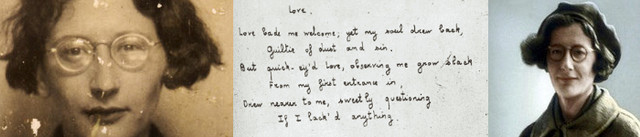 Love.
Love bade me welcome; yet my soul drew back,
Guiltie of dust and sin.
But quick-ey'd Love, observing me grow slack
From my first entrance in,
Drew nearer to me, sweetly questioning
If I lack'd anything.